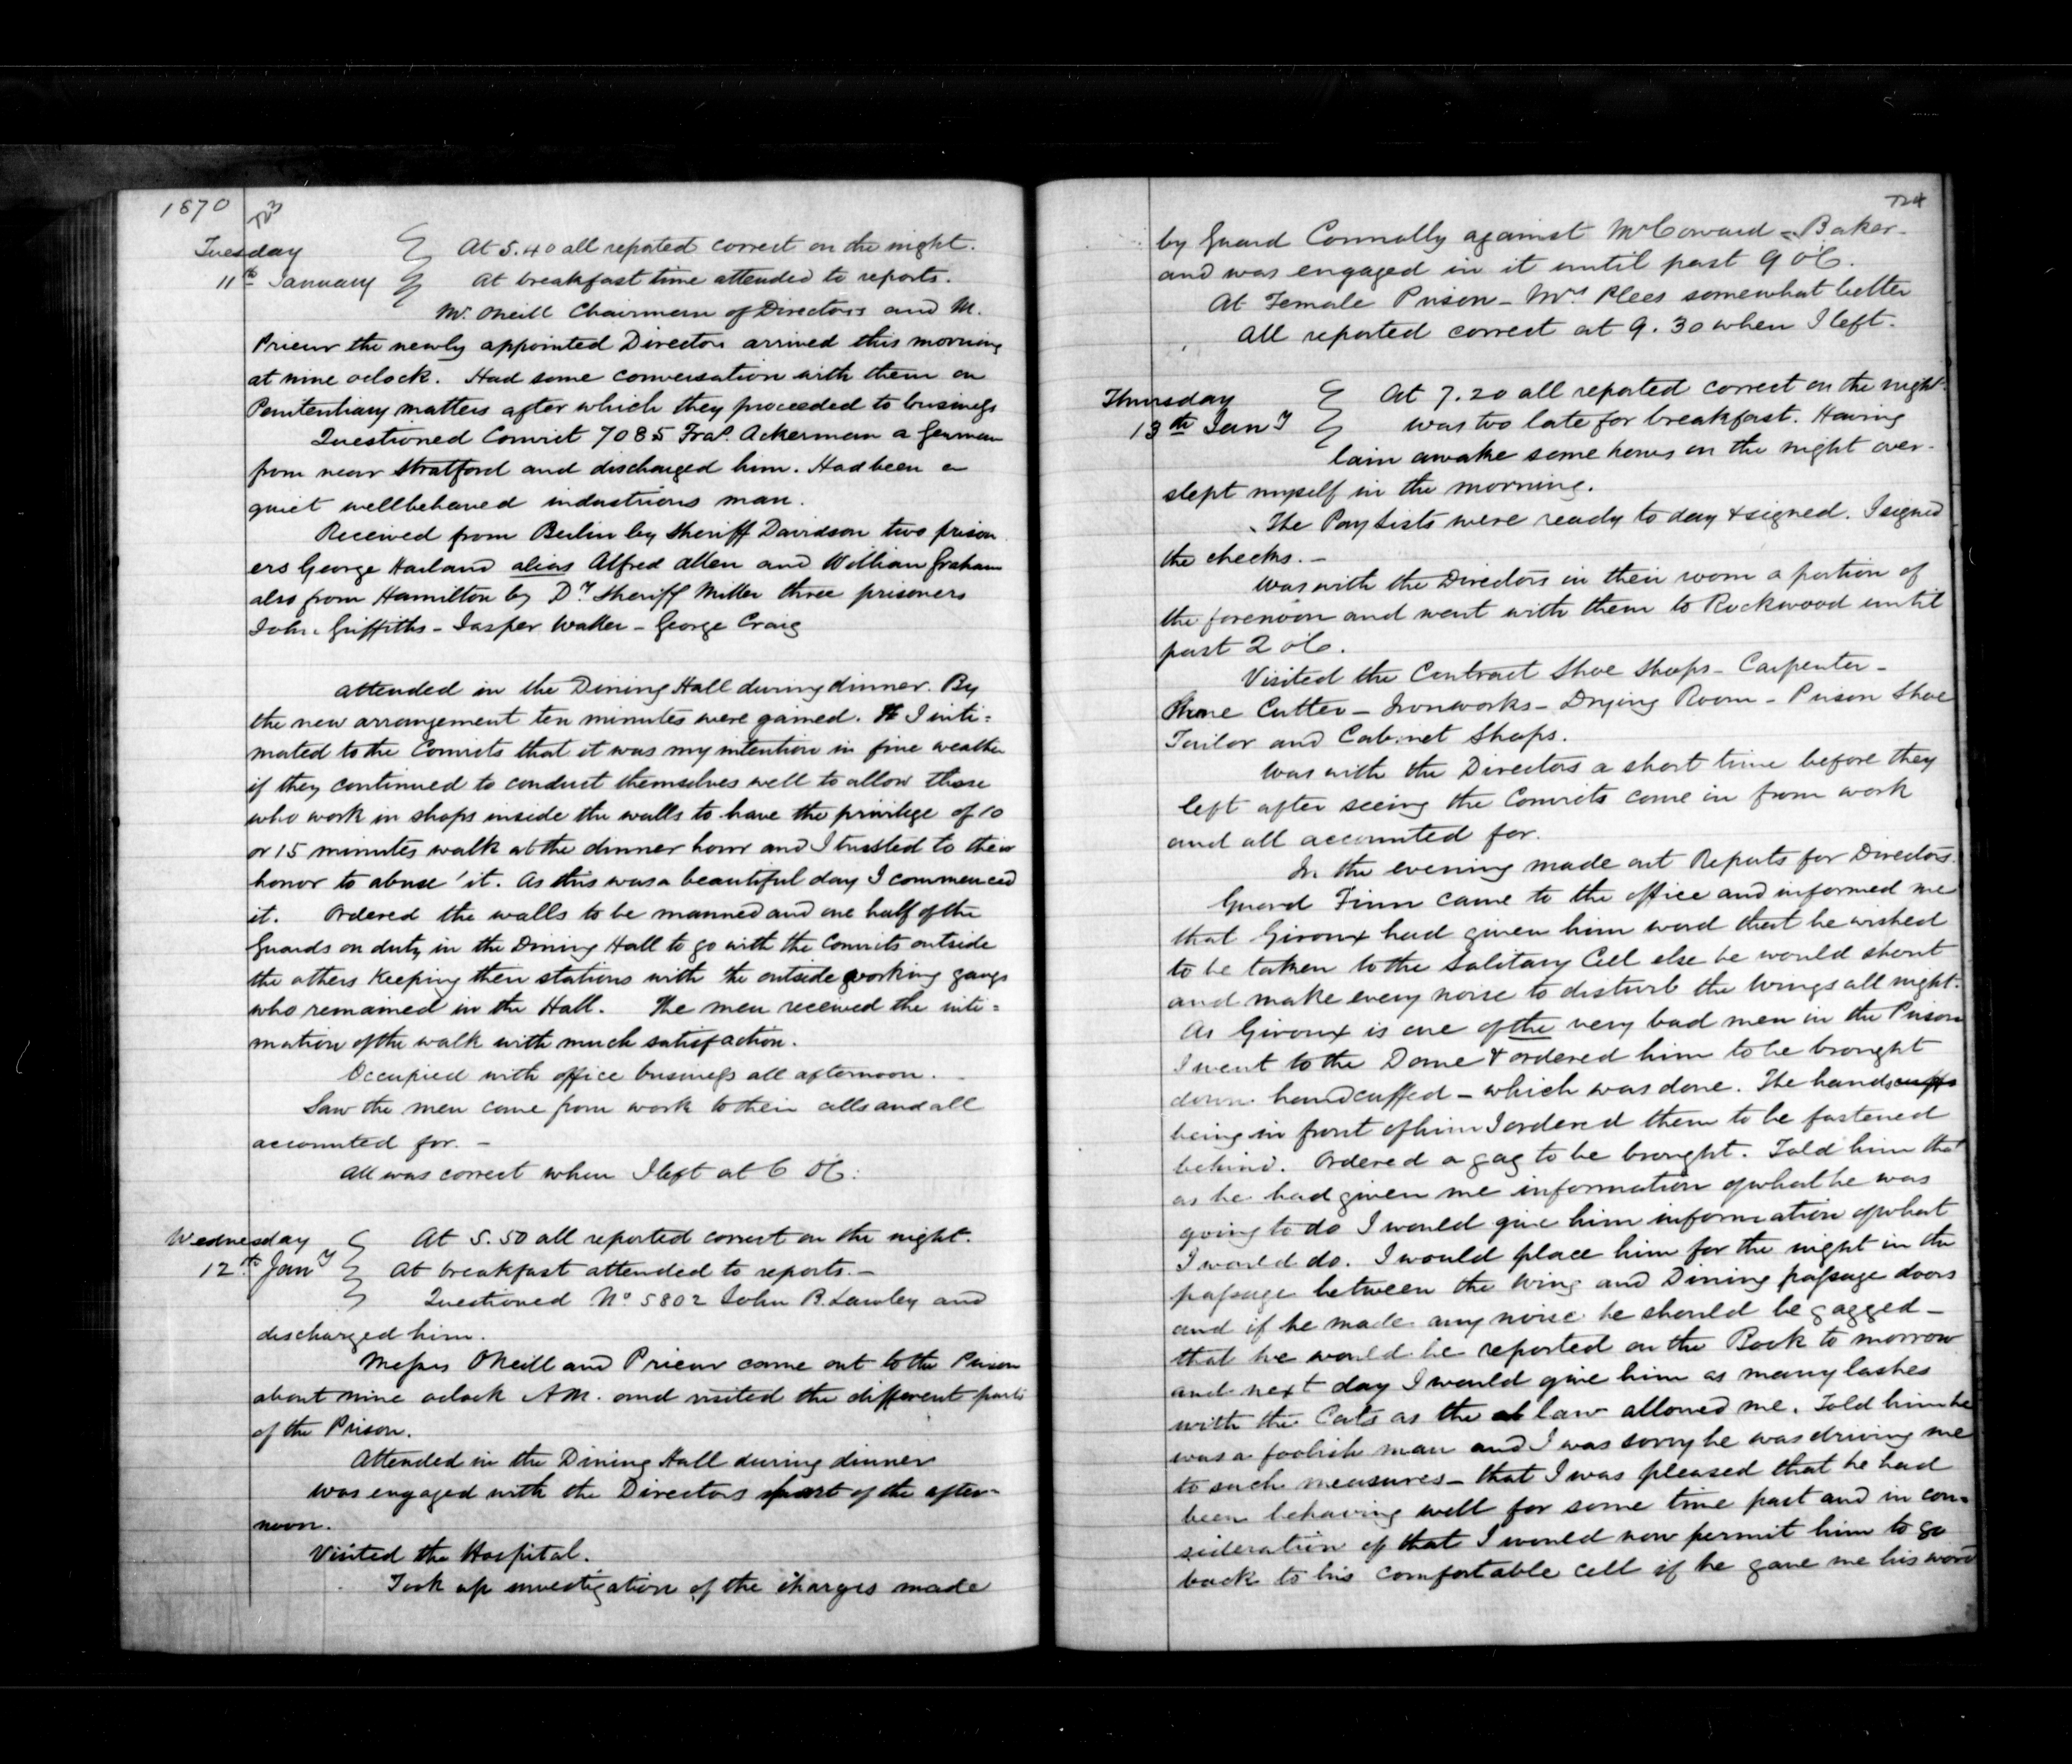 1870
723
Tuesday
11th January
At 5.40 all reported correct on the night.
At breakfast time attended to reports.
Mr. Oneill Chairman of Directors and M.
Prieur the newly appointed Director arrived this morning
at nine oclock. Had some conversation with them on
Penitentiary matters after which they proceeded to business
Questioned Convict 7085 Fras. Ackerman a German
from near Stratford and discharged him. Had been a
quiet wellbehaved industrious man.
Received from Berlin by Sheriff Davidson two prison
ers George Harland alias Alfred Allen and William Graham
also from Hamilton by Dy Sheriff Miller three prisoners
John Griffiths - Jasper Walter - George Craig
Attended in the Dining Hall during dinner. By
the new arrangement ten minutes were gained. I inti=
mated to the Convicts that it was my intention in fine weather
if they continued to conduct themselves well to allow those
who work in shops inside the walls to have the privilege of 10
or 15 minutes walk at the dinner hour and I trusted to their
honor to abuse it. As this was a beautiful day I commenced
it. Ordered the walls to be manned and one half of the
Guards on duty in the Dining Hall to go with the Convicts outside
the others keeping their stations with the outside working gangs
who remained in the Hall. The men received the inti=
mation of the walk with much satisfaction.
Occupied with office business all afternoon.
Saw the men come from work to their cells and all
accounted for. -
All was correct when I left at 6 OC.
Wednesday
12th Jany
At 5.50 all reported correct on the night.
At breakfast attended to reports. -
Questioned No 5802 John B. Lawley and
discharged him.
Messrs ONeill and Prieur came out to the Prison
about nine oclock AM. and visited the different parts
of the Prison.
Attended in the Dining Hall during dinner
Was engaged with the Directors part of the after-
noon.
Visited the Hospital.
Took up investigation of the charges made
724
by Guard Connolly against McCoward - Baker -
and was engaged in it until past 9 oC.
At Female Prison - Mrs Plees somewhat better
All reported correct at 9.30 when I left.
Thursday
13th Jany
At 7.20 all reported correct on the night
was too late for breakfast. Having
lain awake some hours on the night over-
slept myself in the morning.
The Pay Lists were ready to day & signed. I signed
the checks. -
Was with the Directors in their room a portion of
the forenoon and went with them to Rockwood until
past 2 oC.
Visited the Contract Shoe Shops - Carpenter -
Stone Cutter - Ironworks - Drying Room - Prison Shoe
Tailor and Cabinet Shops.
Was with the Directors a short time before they
left after seeing the Convicts come in from work
and all accounted for.
In the evening made out Reports for Directors.
Guard Finn came to the office and informed me
that Giroux had given him word that he wished
to be taken to the Solitary Cell else he would shout
and make every noise to disturb the Wings all night.
As Giroux is one of the very bad men in the Prison
I went to the Dome & ordered him to be brought
down handcuffed - which was done. The handscuffs
being in front of him I ordered them to be fastened
behind. Ordered a gag to be brought. Told him that
as he had given me information of what he was
going to do I would give him information of what
I would do. I would place him for the night in the
passage between the Wing and Dining passage doors
and if he made any noise he should be gagged -
that he would be reported on the Book to morrow
and next day I would give him as many lashes
with the Cats as the law allowed me. Told him he
was a foolish man and I was sorry he was driving me
to such measures - that I was pleased that he had
been behaving well for some time past and in con-
sideration of that I would now permit him to go
back to his comfortable cell if he gave me his word